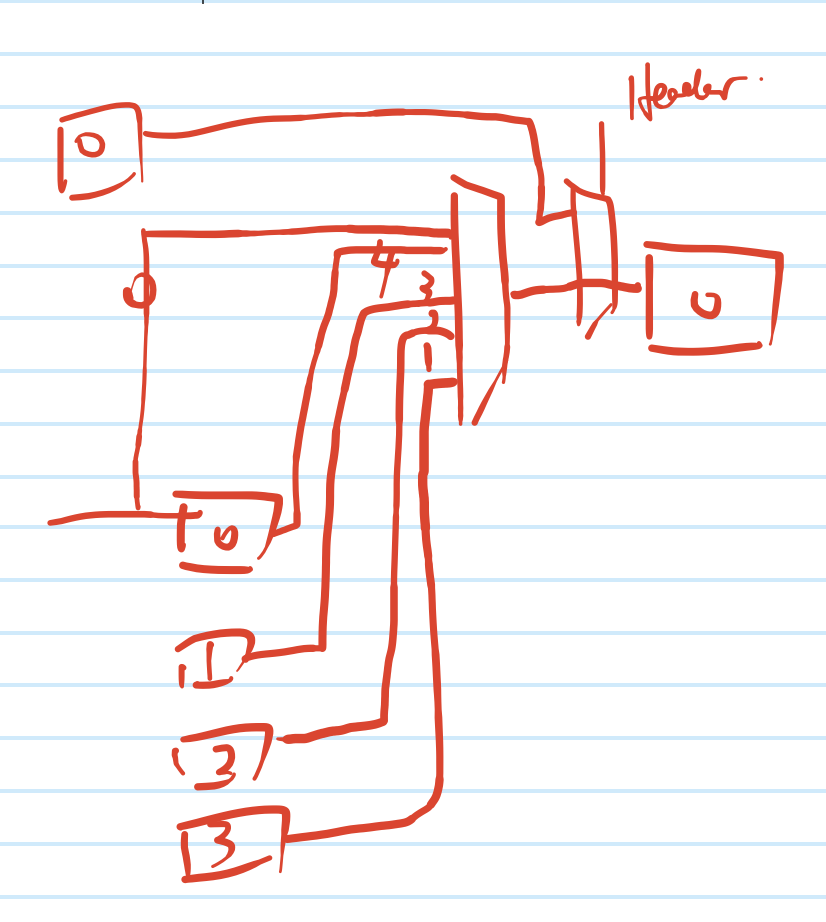 Header
0
0
4
3
2
1
0
0
1
2
3